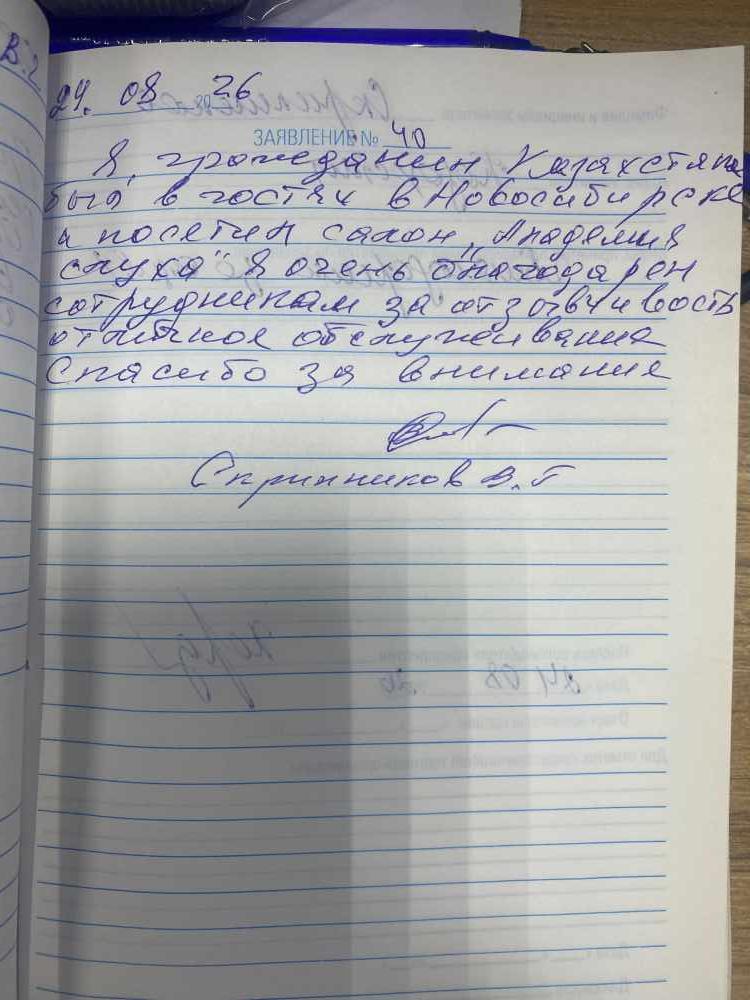 24. 08 2026
ЗАЯВЛЕНИЕ № 40
Я, гражданин Казахстана
был в гостях в Новосибирске
и посетил салон „Академия
слуха" Я очень благодарен
сотрудникам за отзывчивость
отличное обслуживание
Спасибо за внимание
Скрипников В.Г